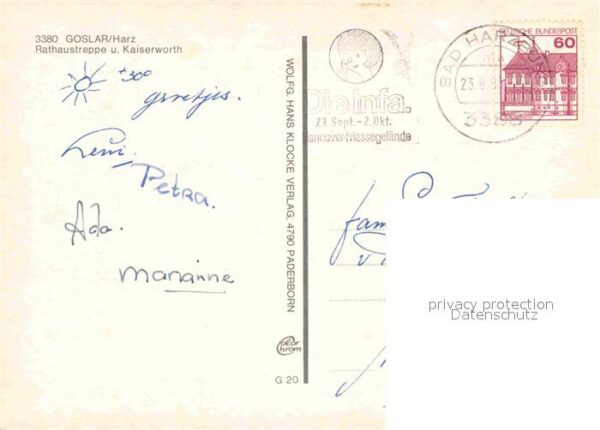 3380 GOSLAR/Harz
Rathaustreppe u. Kaiserworth
+30°
groetjes.
Leni.
Petra.
Ada.
Marianne
WOLFG. HANS KLOCKE VERLAG, 4790 PADERBORN
color chrom
G 20
Die Infa.
23. Sept. - 2. Okt.
Hannover-Messegelände
BAD HARZBUR
23.8.
3388
DEUTSCHE BUNDESPOST
60
fam.
privacy protection
Datenschutz